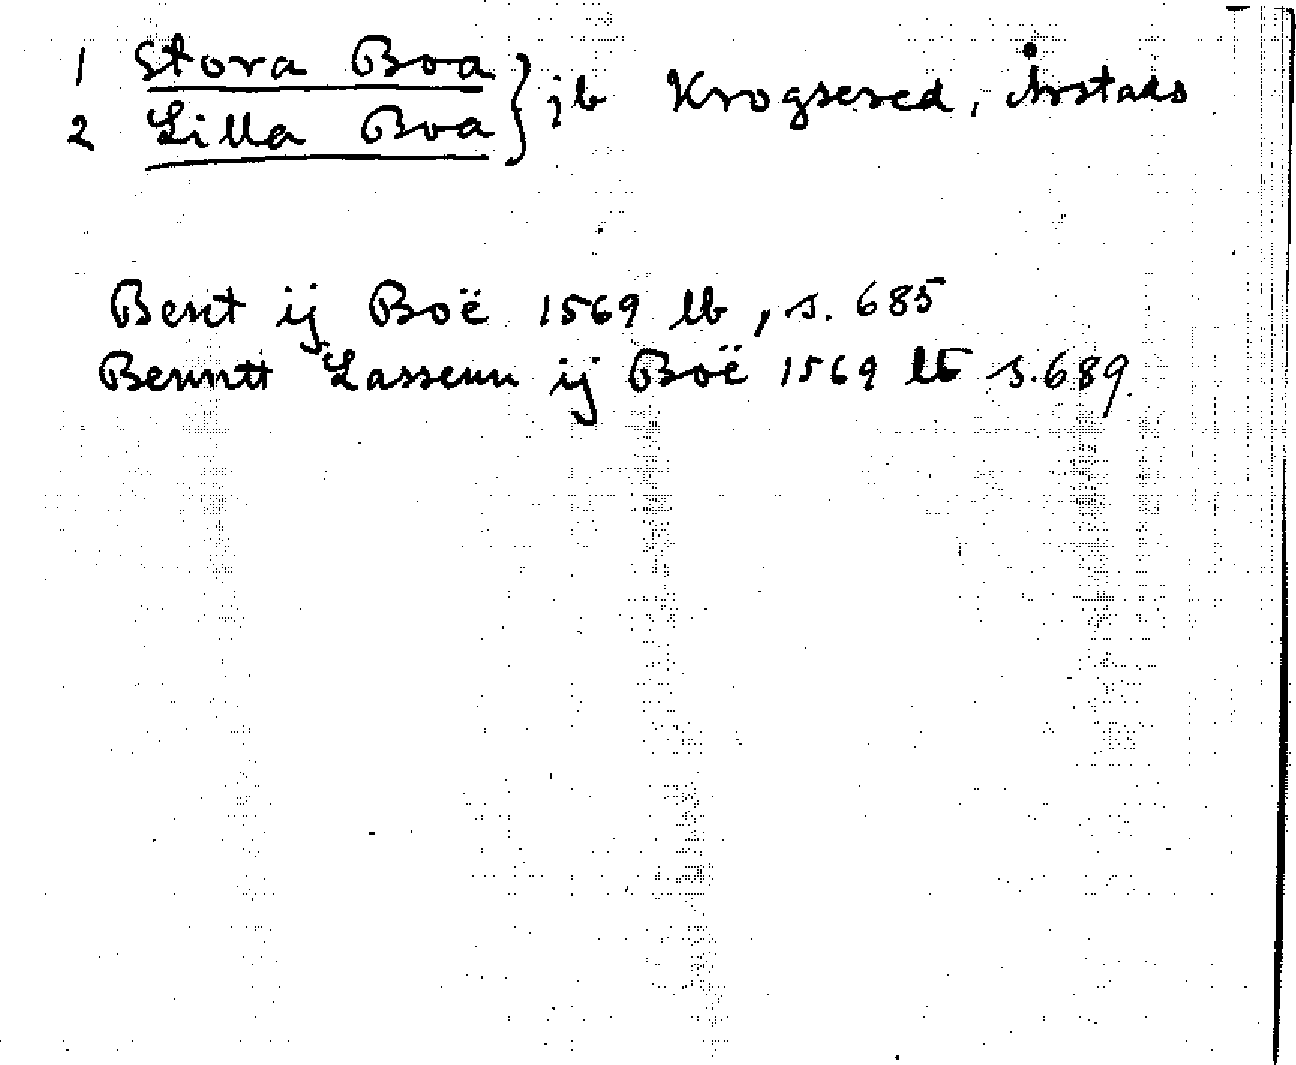 1 Stora Boa } jb Krogsered, Årstads
2 Lilla Boa
Bent ij Boë 1569 lb, s. 685
Benntt Lassenn ij Boë 1569 lb s. 689